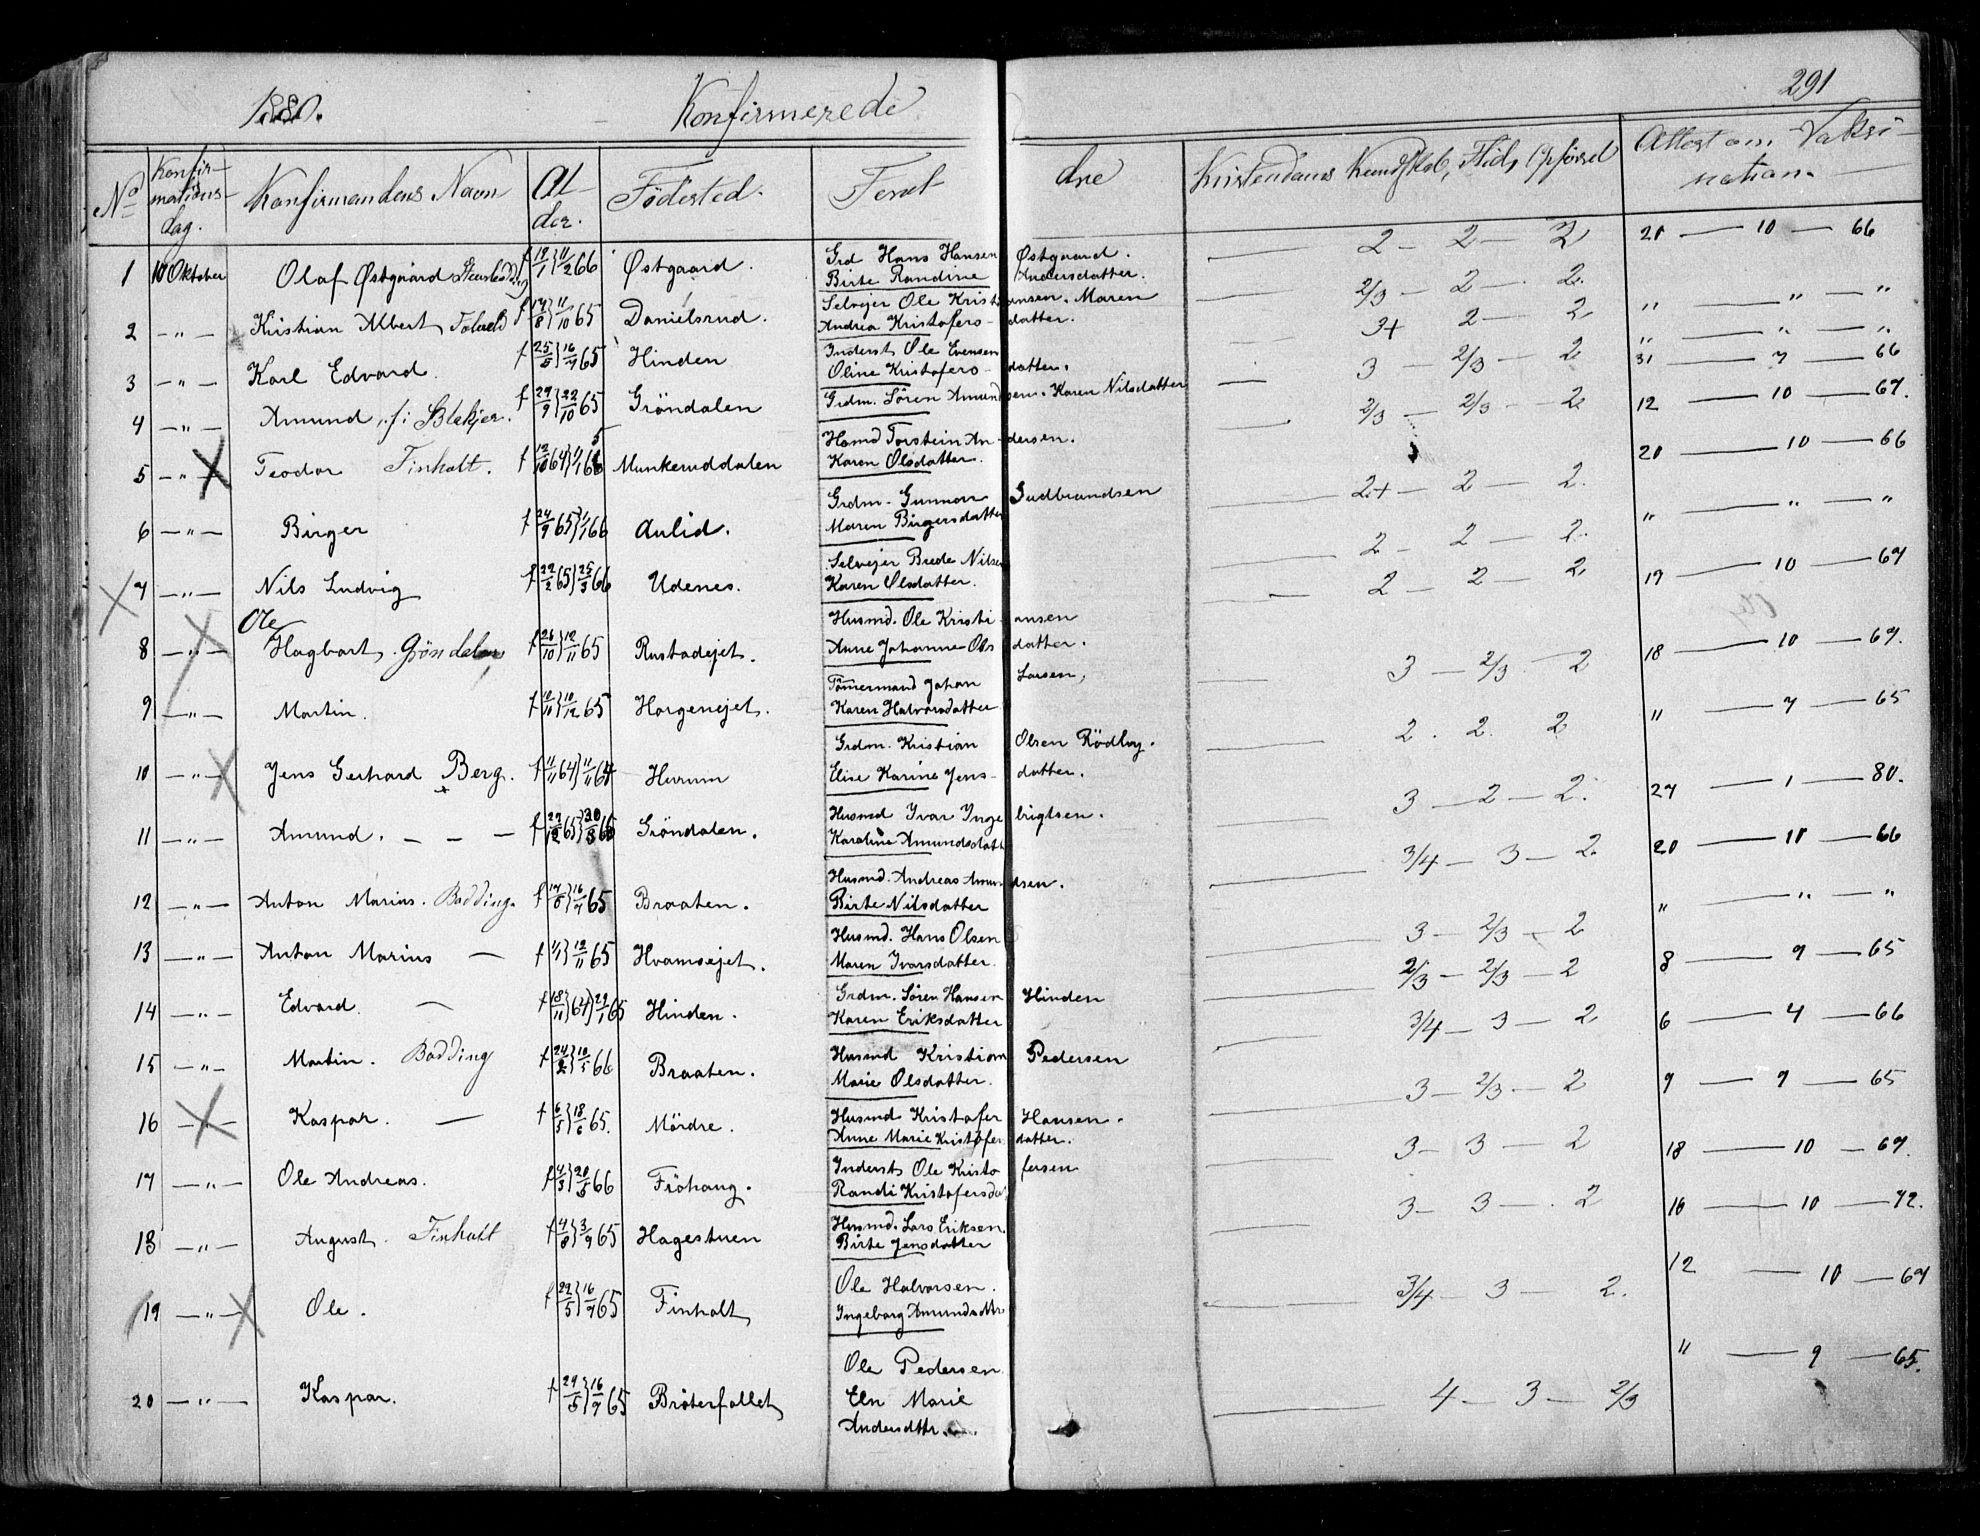 1880. Konfirmerede 291
No Konfirmationsdag. Konfirmandens Navn Alder. Födested. Foreldre Kristendoms Kundskab, Flid, Opförsel Attest om Vaksination.
1 10 Oktober Olaf Østgaard f 19/1 } 11/2 66 Østgaard. Grd Hans Hansen Østgaard. 2 — 2 — 2 20 — 10 — 66
Birte Randine Andersdatter.
2 — " — Kristian Albert f 14/8 } 11/10 65 Danielsrud. Selvejer Ole Kristiansen. Maren 2/3 — 2 — 2. " — " — "
Andrea Kristofersdatter.
3 — " — Karl Edvard. f 25/5 } 16/7 65 Hinden Inderst Ole Evensen 3+ 2 — 2 " — " — "
Oline Kristofersdatter.
4 — " — Amund f 29/9 } 22/10 65 Gröndalen Grdm. Sören Amundsen. Karen Nilsdatter 3 — 2/3 — 2 31 — 7 — 66
5 — " — Teodor Finholt. f 12/10 64 } 1/1 65 Munkeruddalen Hsmd Torstein Andersen. 2/3 — 2/3 — 2 12 — 10 — 67.
Karen Olsdatter.
6 — " — Birger f 24/9 65 } 1/1 66 Aulid. Grdm. Gunnar Gudbrandsen 2+ — 2 — 2. 20 — 10 — 66
Maren Birgersdatter
7 — " — Nils Ludvig f 22/2 65 } 25/3 66 Udenes. Selvejer Brede Nilsen 2 — 2 — 2. " — " — "
Karen Olsdatter.
Ole
8 — " — Hagbart. Gröndalen f 26/10 } 12/11 65 Rustadejet. Husmd. Ole Kristiansen 2 — 2 — 2 19 — 10 — 67
Anne Johanne Olsdatter.
9 — " — Martin. f 10/10 } 10/12 65 Horgenejet. Tömermand Johan Larsen, 3 — 2/3 — 2 18 — 10 — 67.
Karen Halvorsdatter
10 — " — Jens Gerhard Berg. f 11/11 64 } 11/11 64 Hurum Grdm. Kristian Olsen Rödby. 2. 2. 2 " — 7 — 65
Elise Karine Jensdatter.
11 — " — Amund. — — f 27/12 65 } 30/3 66 Gröndalen. Husmd Ivar Ingebrigtsen. 3 — 2 — 2. 27 — 1 — 80.
Karoline Amundsdatt
12 — " — Anton Marius. Bodding. f 14/6 } 16/7 65 Braaten. Husmd. Andreas Amundsen. 3/4 — 3 — 2. 20 — 10 — 66
Birte Nilsdatter
13 — " — Anton Marius — f 1/1 } 12/11 65 Hvamsejet. Husmd. Hans Olsen 3 — 2/3 — 2 " — " — "
Maren Ivarsdatter.
14 — " — Edvard. — f 18/11 64 } 29/1 65 Hinden. Grdm. Sören Hansen Hinden 2/3 — 2/3 — 2 8 — 9 — 65
Karen Eriksdatter
15 — " — Martin. Bodding f 24/2 } 10/5 66 Braaten. Husmd Kristian Pedersen 3/4 — 3 — 2 6 — 4 — 66
Marie Olsdatter.
16 — " — Kaspar. — f 6/5 } 18/6 65. Mördre. Husmd Kristofer Hansen. 3 — 2/3 — 2 9 — 9 — 65
Anne Marie Kristoferdatter.
17 — " — Ole Andreas. f 4/3 } 20/5 66 Fröhaug. Inderst Ole Kristofersen 3 — 3 — 2 18 — 10 — 67.
Randi Kristofersda
18 — " — August. Finholt f 4/8 } 3/9 65 Hagestuen Husmd. Lars Eriksen. 3 — 3 — 2 16 — 10 — 72.
Birte Jensdatter
19 — " — Ole. f 29/5 } 16/7 65 Finholt Ole Halvorsen. 3/4 — 3 — 2. 12 — 10 — 67
Ingeborg Amundsdtr
20 — " — Kaspar. f 29/5 } 16/7 65 Bröterfallet Ole Pedersen 4 — 3 — 2/3 " — 9 — 65.
Eln Marie
Andersdttr.